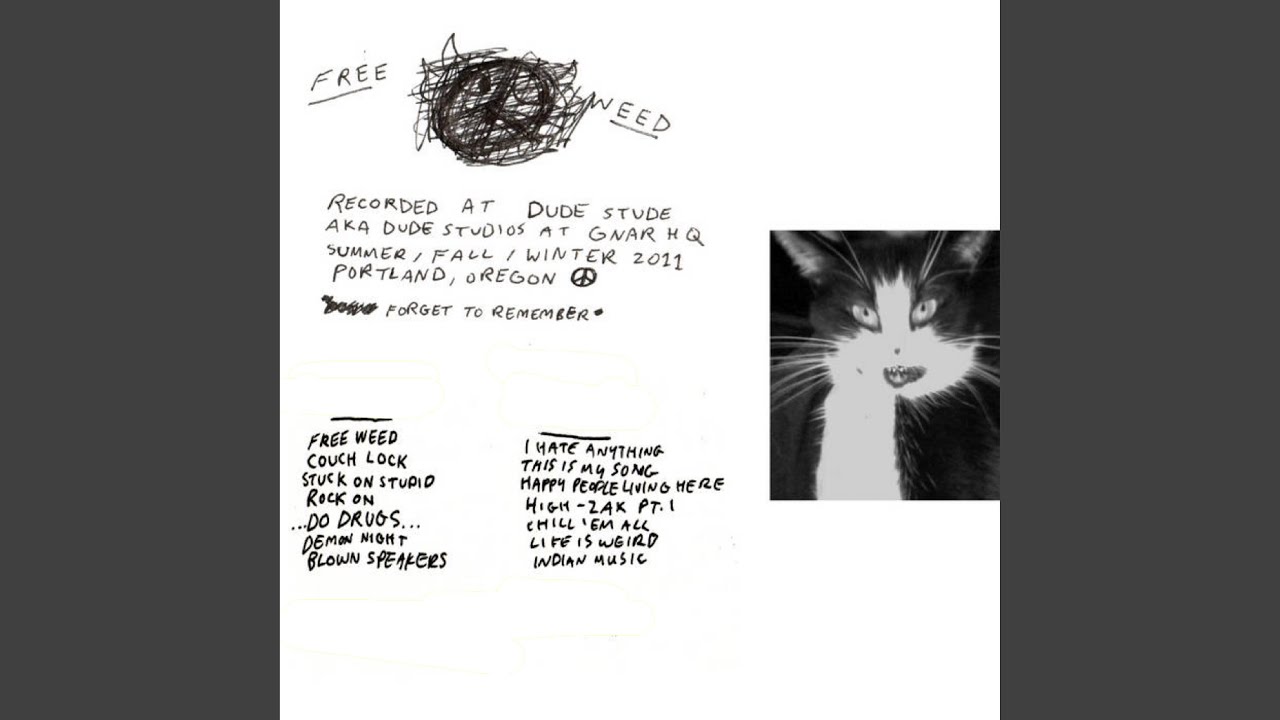 FREE WEED
RECORDED AT DUDE STUDE
AKA DUDE STUDIOS AT GNAR HQ
SUMMER, FALL, WINTER 2011
PORTLAND, OREGON
FORGET TO REMEMBER
FREE WEED
COUCH LOCK
STUCK ON STUPID
ROCK ON
...DO DRUGS...
DEMON NIGHT
BLOWN SPEAKERS
I HATE ANYTHING
THIS IS MY SONG
HAPPY PEOPLE LIVING HERE
HIGH-ZAK PT. 1
CHILL 'EM ALL
LIFE IS WEIRD
INDIAN MUSIC